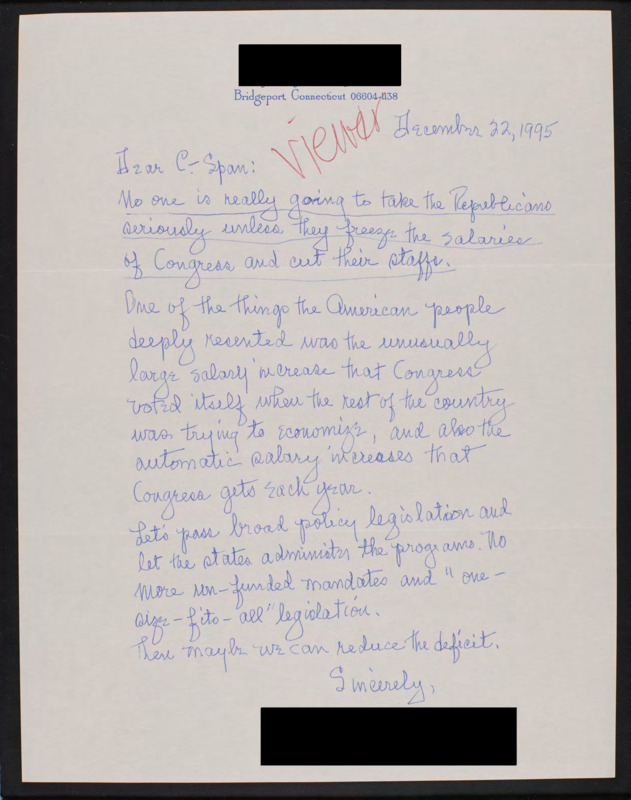 Bridgeport, Connecticut 06604-1138
viewer
December 22, 1995
Dear C-Span:
No one is really going to take the Republicans
seriously unless they freeze the salaries
of Congress and cut their staffs.
One of the things the American people
deeply resented was the unusually
large salary increase that Congress
voted itself when the rest of the country
was trying to economize, and also the
automatic salary increases that
Congress gets each year.
Let's pass broad policy legislation and
let the states administer the programs. No
more un-funded mandates and "one-
size-fits-all" legislation.
Then maybe we can reduce the deficit.
Sincerely,